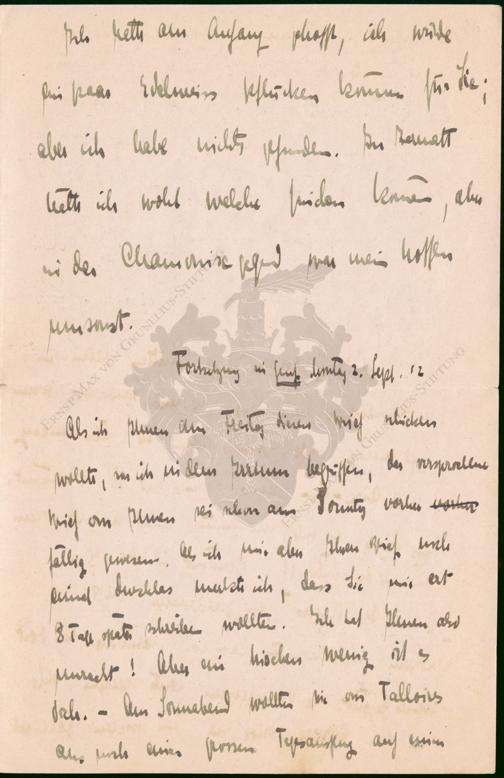 Ich hatte am Anfang gehofft, ich würde
ein paar Edelweiss pflücken können für Sie;
aber ich habe nichts gefunden. In Zermatt
hätte ich wohl welche finden können, aber
in der Chamonix gegend war mein hoffen
umsonst.
Fortsetzung in Genf, Sonntag 2. Sept. 12
Als ich Ihnen am Freitag diesen Brief schicken
wollte, war ich in dem Irrtum begriffen, der versprochene
Brief von Ihnen sei schon am Sonntag vorher vorher
fällig gewesen. Als ich mir aber Ihren Brief noch
einmal durchlas merkte ich, dass Sie mir erst
8 Tage später schreiben wollten. Ich tat Ihnen also
unrecht! Aber ein bischen wenig ist es
doch. – Am Sonnabend wollten wir von Talloires
aus noch einen grossen Tagesausflug auf einen
ERNST MAX VON GRUNELIUS-STIFTUNG
ERNST MAX VON GRUNELIUS-STIFTUNG